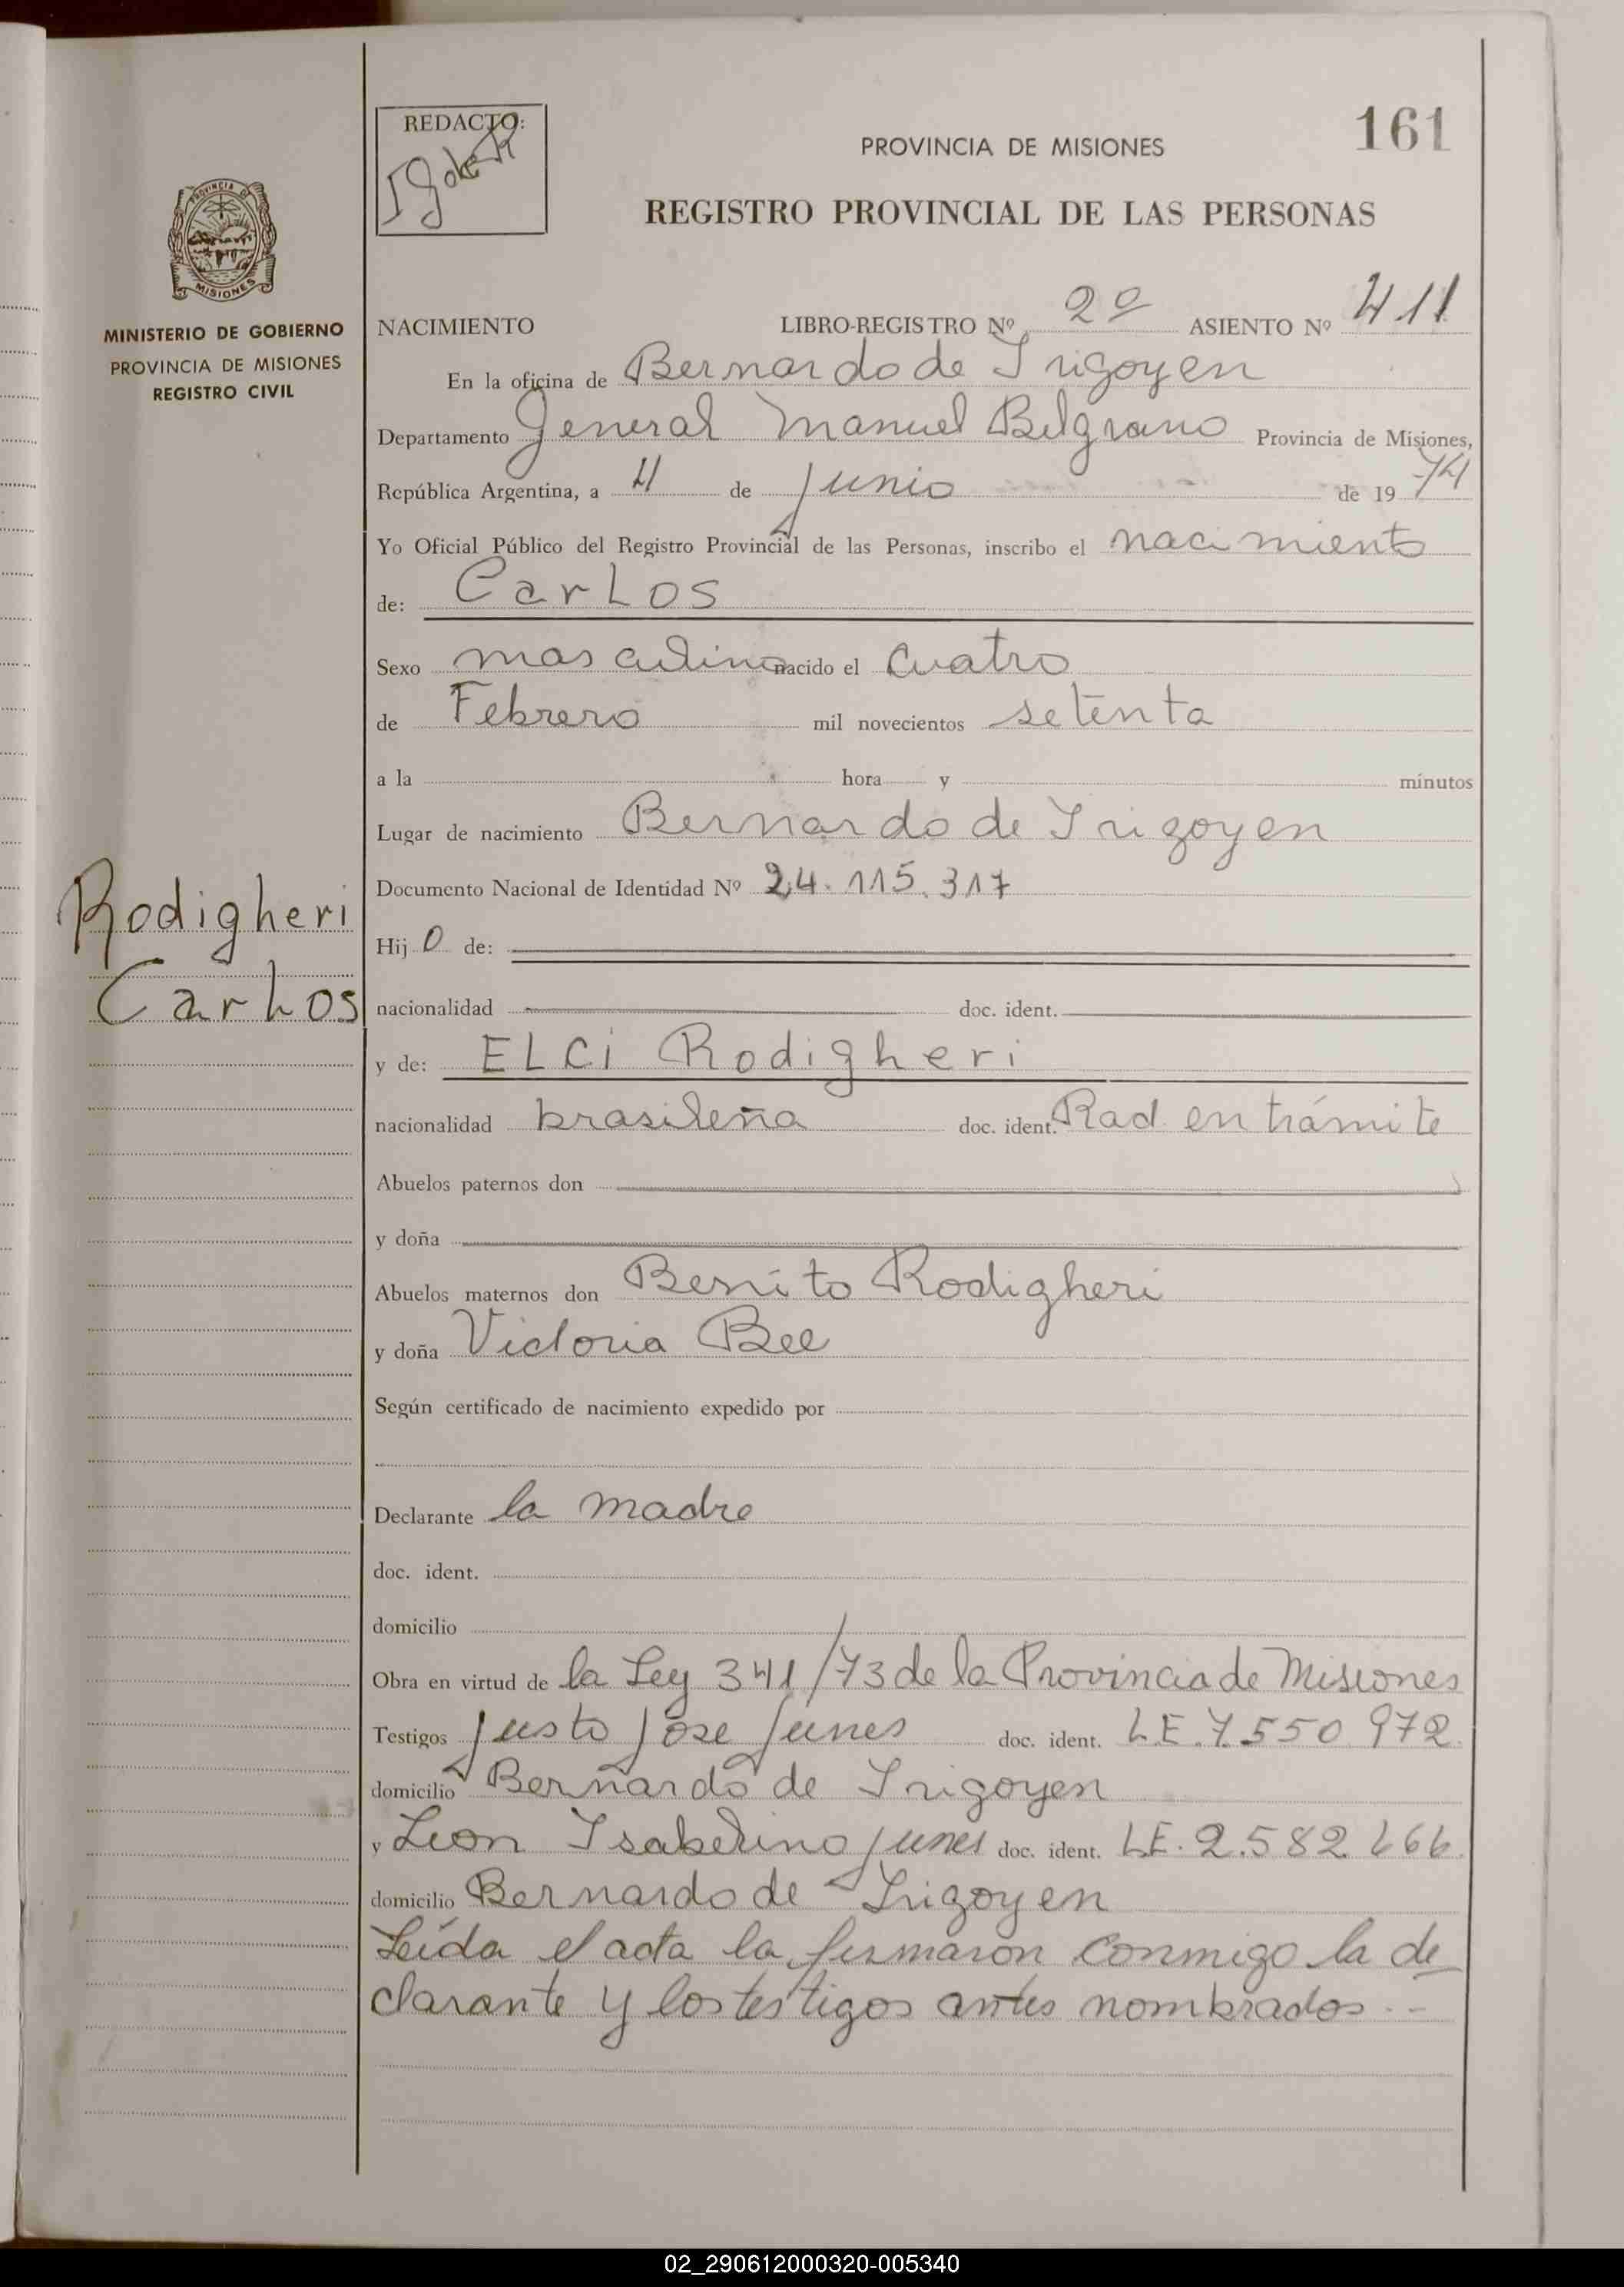 REDACTO:
161
PROVINCIA DE MISIONES
REGISTRO PROVINCIAL DE LAS PERSONAS
PROVINCIA D
MISIONES
MINISTERIO DE GOBIERNO
PROVINCIA DE MISIONES
REGISTRO CIVIL
NACIMIENTO LIBRO-REGISTRO Nº 2º ASIENTO Nº 411
En la oficina de Bernardo de Irigoyen
Departamento General Manuel Belgrano Provincia de Misiones,
República Argentina, a 4 de Junio de 19 74
Yo Oficial Público del Registro Provincial de las Personas, inscribo el nacimiento
de: CarLos
Sexo masculino nacido el cuatro
de Febrero mil novecientos setenta
a la hora y minutos
Lugar de nacimiento Bernardo de Irigoyen
Documento Nacional de Identidad Nº 24.115.317
Rodigheri
Carlos
Hij o de:
nacionalidad doc. ident.
y de: ELCi Rodigheri
nacionalidad brasileña doc. ident. Rad en trámite
Abuelos paternos don
y doña
Abuelos maternos don Benito Rodigheri
y doña Victoria Bee
Según certificado de nacimiento expedido por
Declarante la madre
doc. ident.
domicilio
Obra en virtud de la Ley 341/73 de la Provincia de Misiones
Testigos Justo Jose Junes doc. ident. LE.7.550.972
domicilio Bernardo de Irigoyen
y Leon Isabelino Junes doc. ident. LE.2.582.666
domicilio Bernardo de Irigoyen
Leída el acta la firmaron conmigo la de
clarante y los testigos antes nombrados.-
02_290612000320-005340